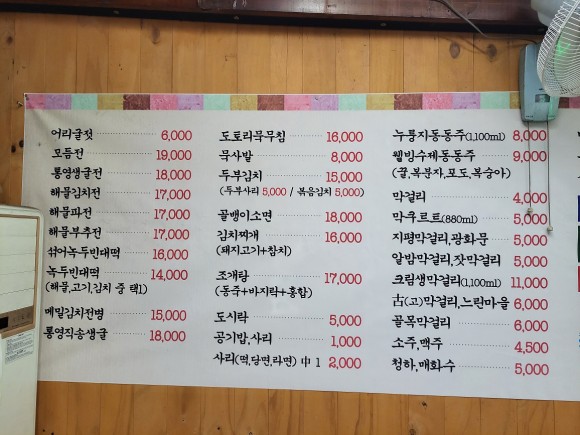 어리굴젓 6,000
모듬전 19,000
통영생굴전 18,000
해물김치전 17,000
해물파전 17,000
해물부추전 17,000
섞어녹두빈대떡 16,000
녹두빈대떡 14,000
(해물,고기,김치 중 택1)
메밀김치전병 15,000
통영직송생굴 18,000
도토리묵무침 16,000
묵사발 8,000
두부김치 15,000
(두부사리 5,000 / 볶음김치 5,000)
골뱅이소면 18,000
김치찌개 16,000
(돼지고기+참치)
조개탕 17,000
(동죽+바지락+홍합)
도시락 5,000
공기밥,사리 1,000
사리(떡,당면,라면) 中 1 2,000
누룽지동동주(1,100ml) 8,000
웰빙수제동동주 9,000
(꿀,복분자,포도,복숭아)
막걸리 4,000
막우르트(880ml) 5,000
지평막걸리,광화문 5,000
알밤막걸리,잣막걸리 5,000
크림생막걸리(1,100ml) 11,000
古(고)막걸리,느린마을 6,000
골목막걸리 6,000
소주,맥주 4,500
청하,매화수 5,000